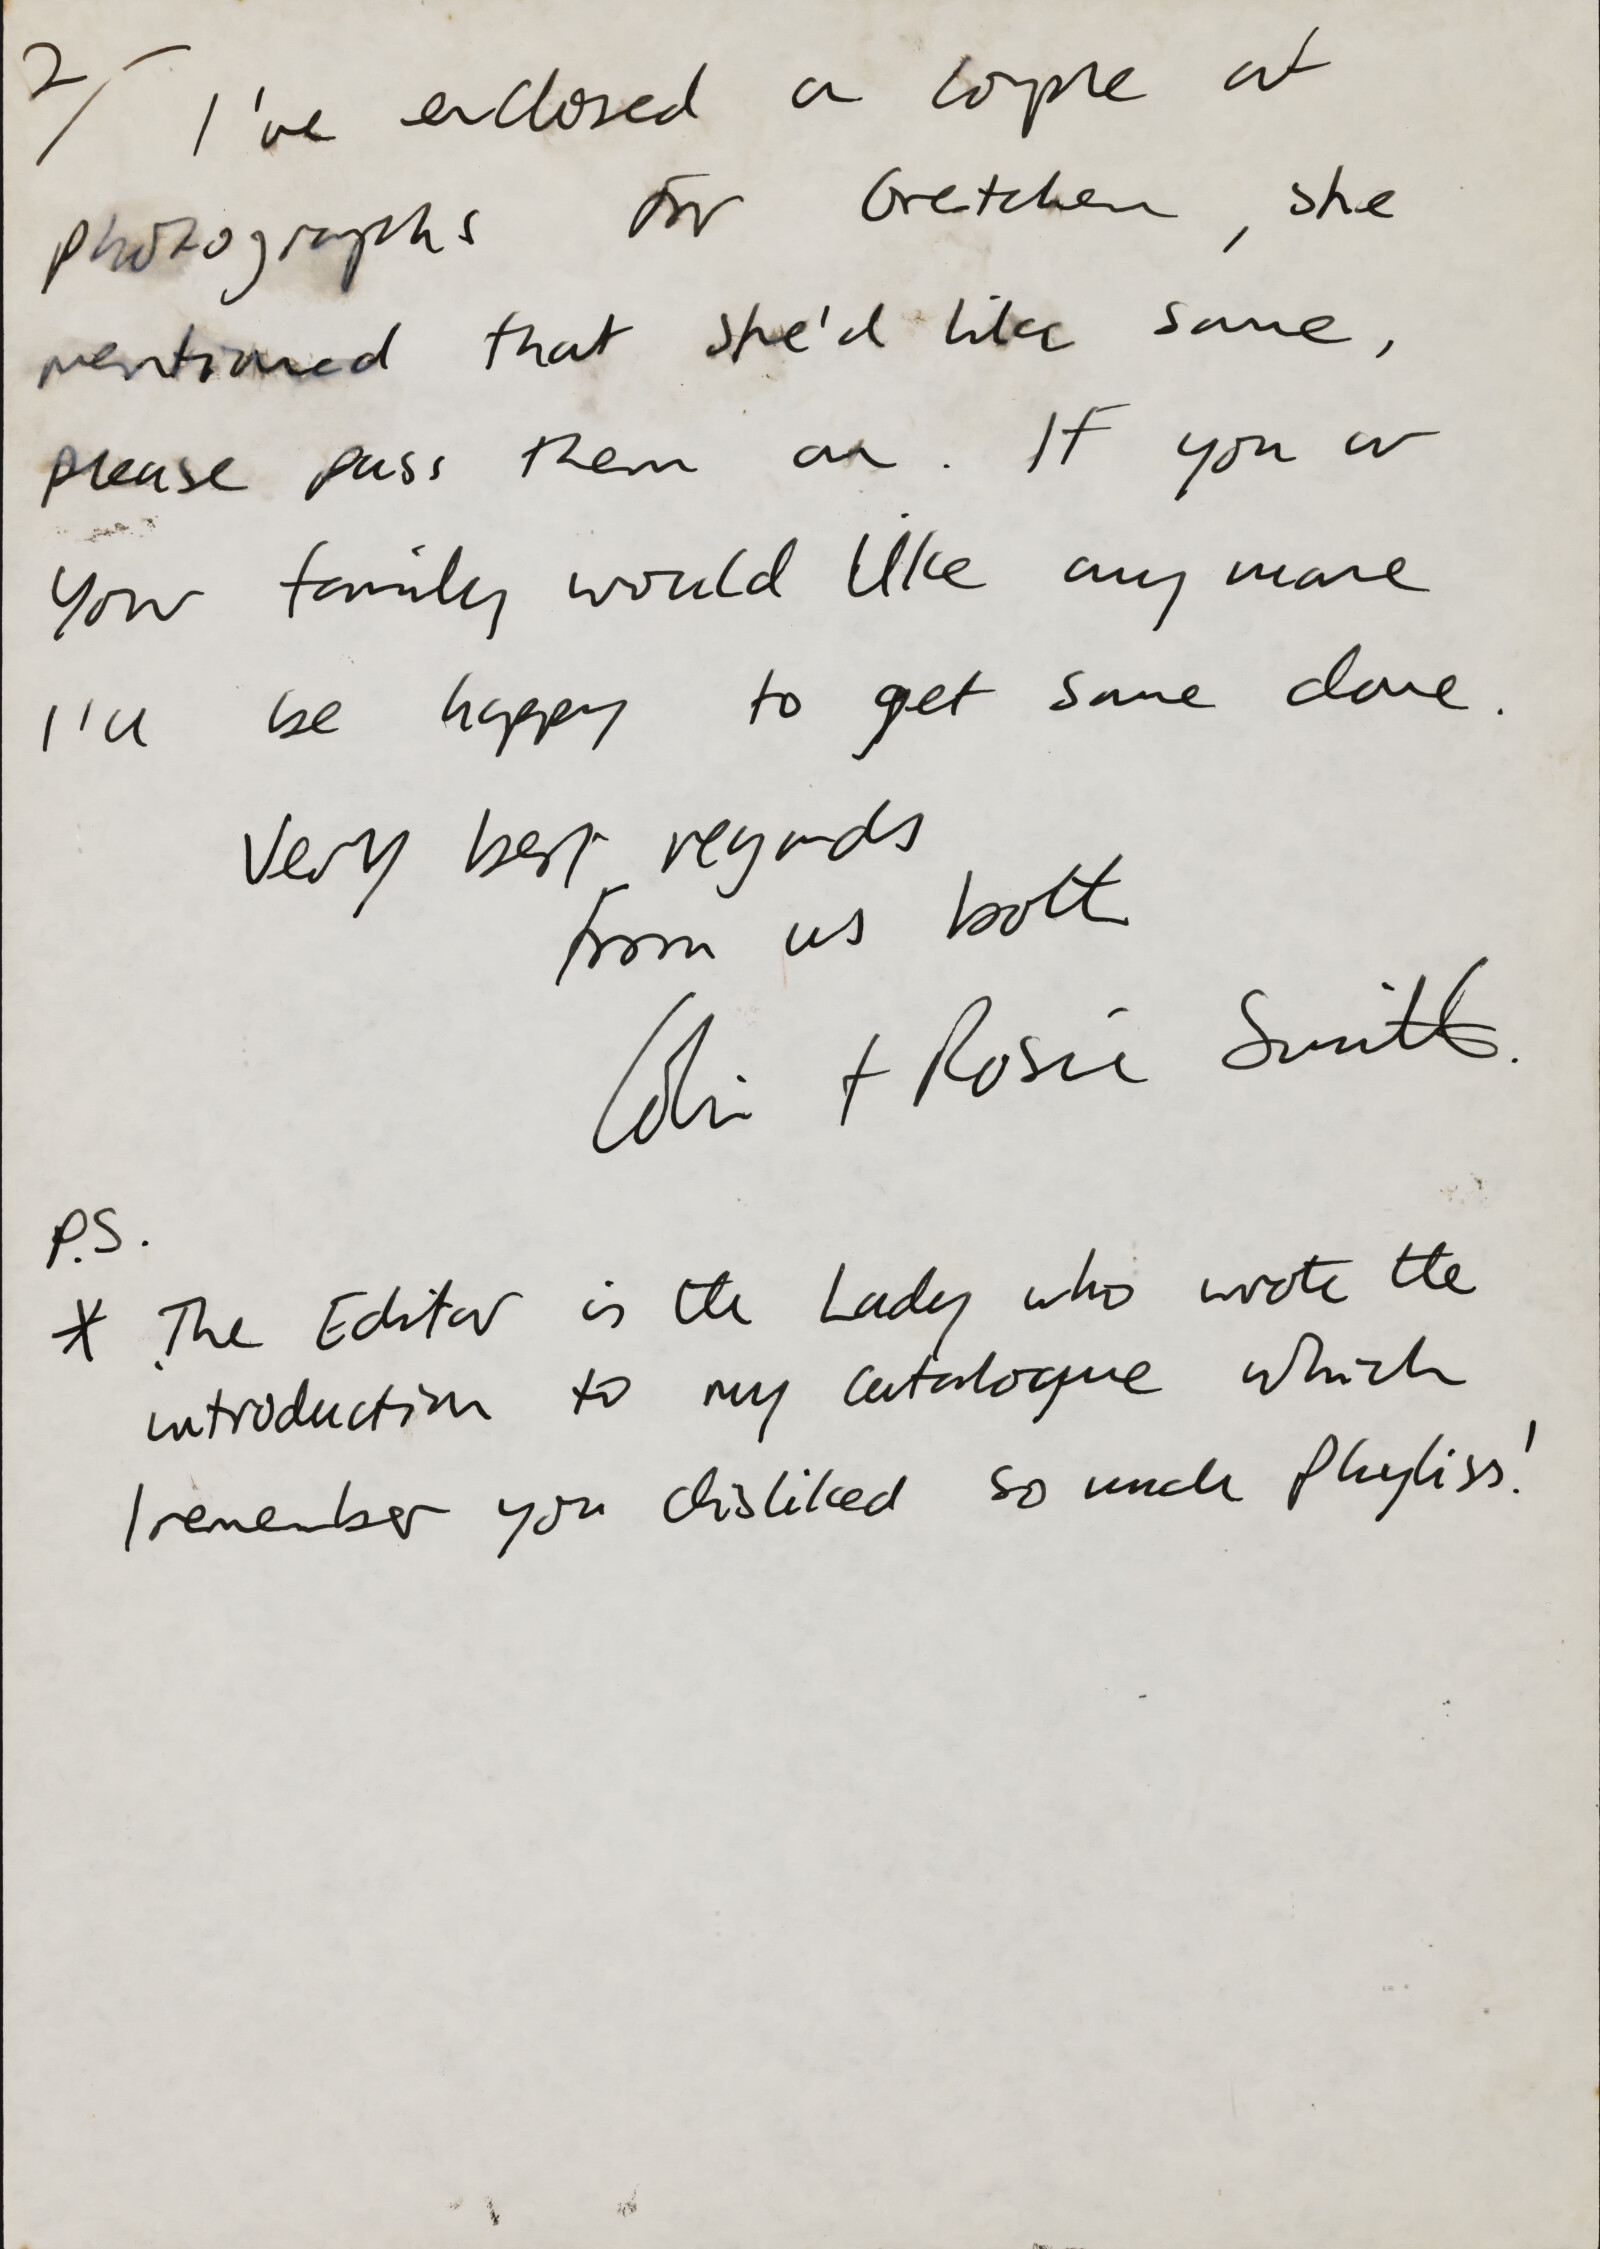 2/ I've enclosed a couple of
photographs for Gretchen, she
mentioned that she'd like some,
please pass them on. If you or
your family would like any more
I'll be happy to get some done.
Very best regards
from us both
Colin + Rosie Smith.
P.S.
* The Editor is the Lady who wrote the
introduction to my catalogue which
I remember you disliked so much Phyliss!